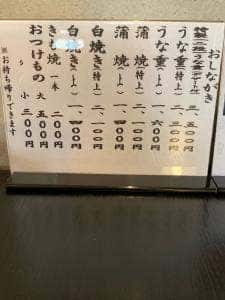 おしながき
三、五〇〇円
うな重(特上) 二、三〇〇円
うな重(上) 一、六〇〇円
蒲焼(特上) 二、一〇〇円
蒲焼(上) 一、四〇〇円
白焼き(特上) 二、一〇〇円
白焼き(上) 一、四〇〇円
きも焼 一本 二〇〇円
おつけもの 大 五〇〇円
〃 小 三〇〇円
※お持ち帰りできます